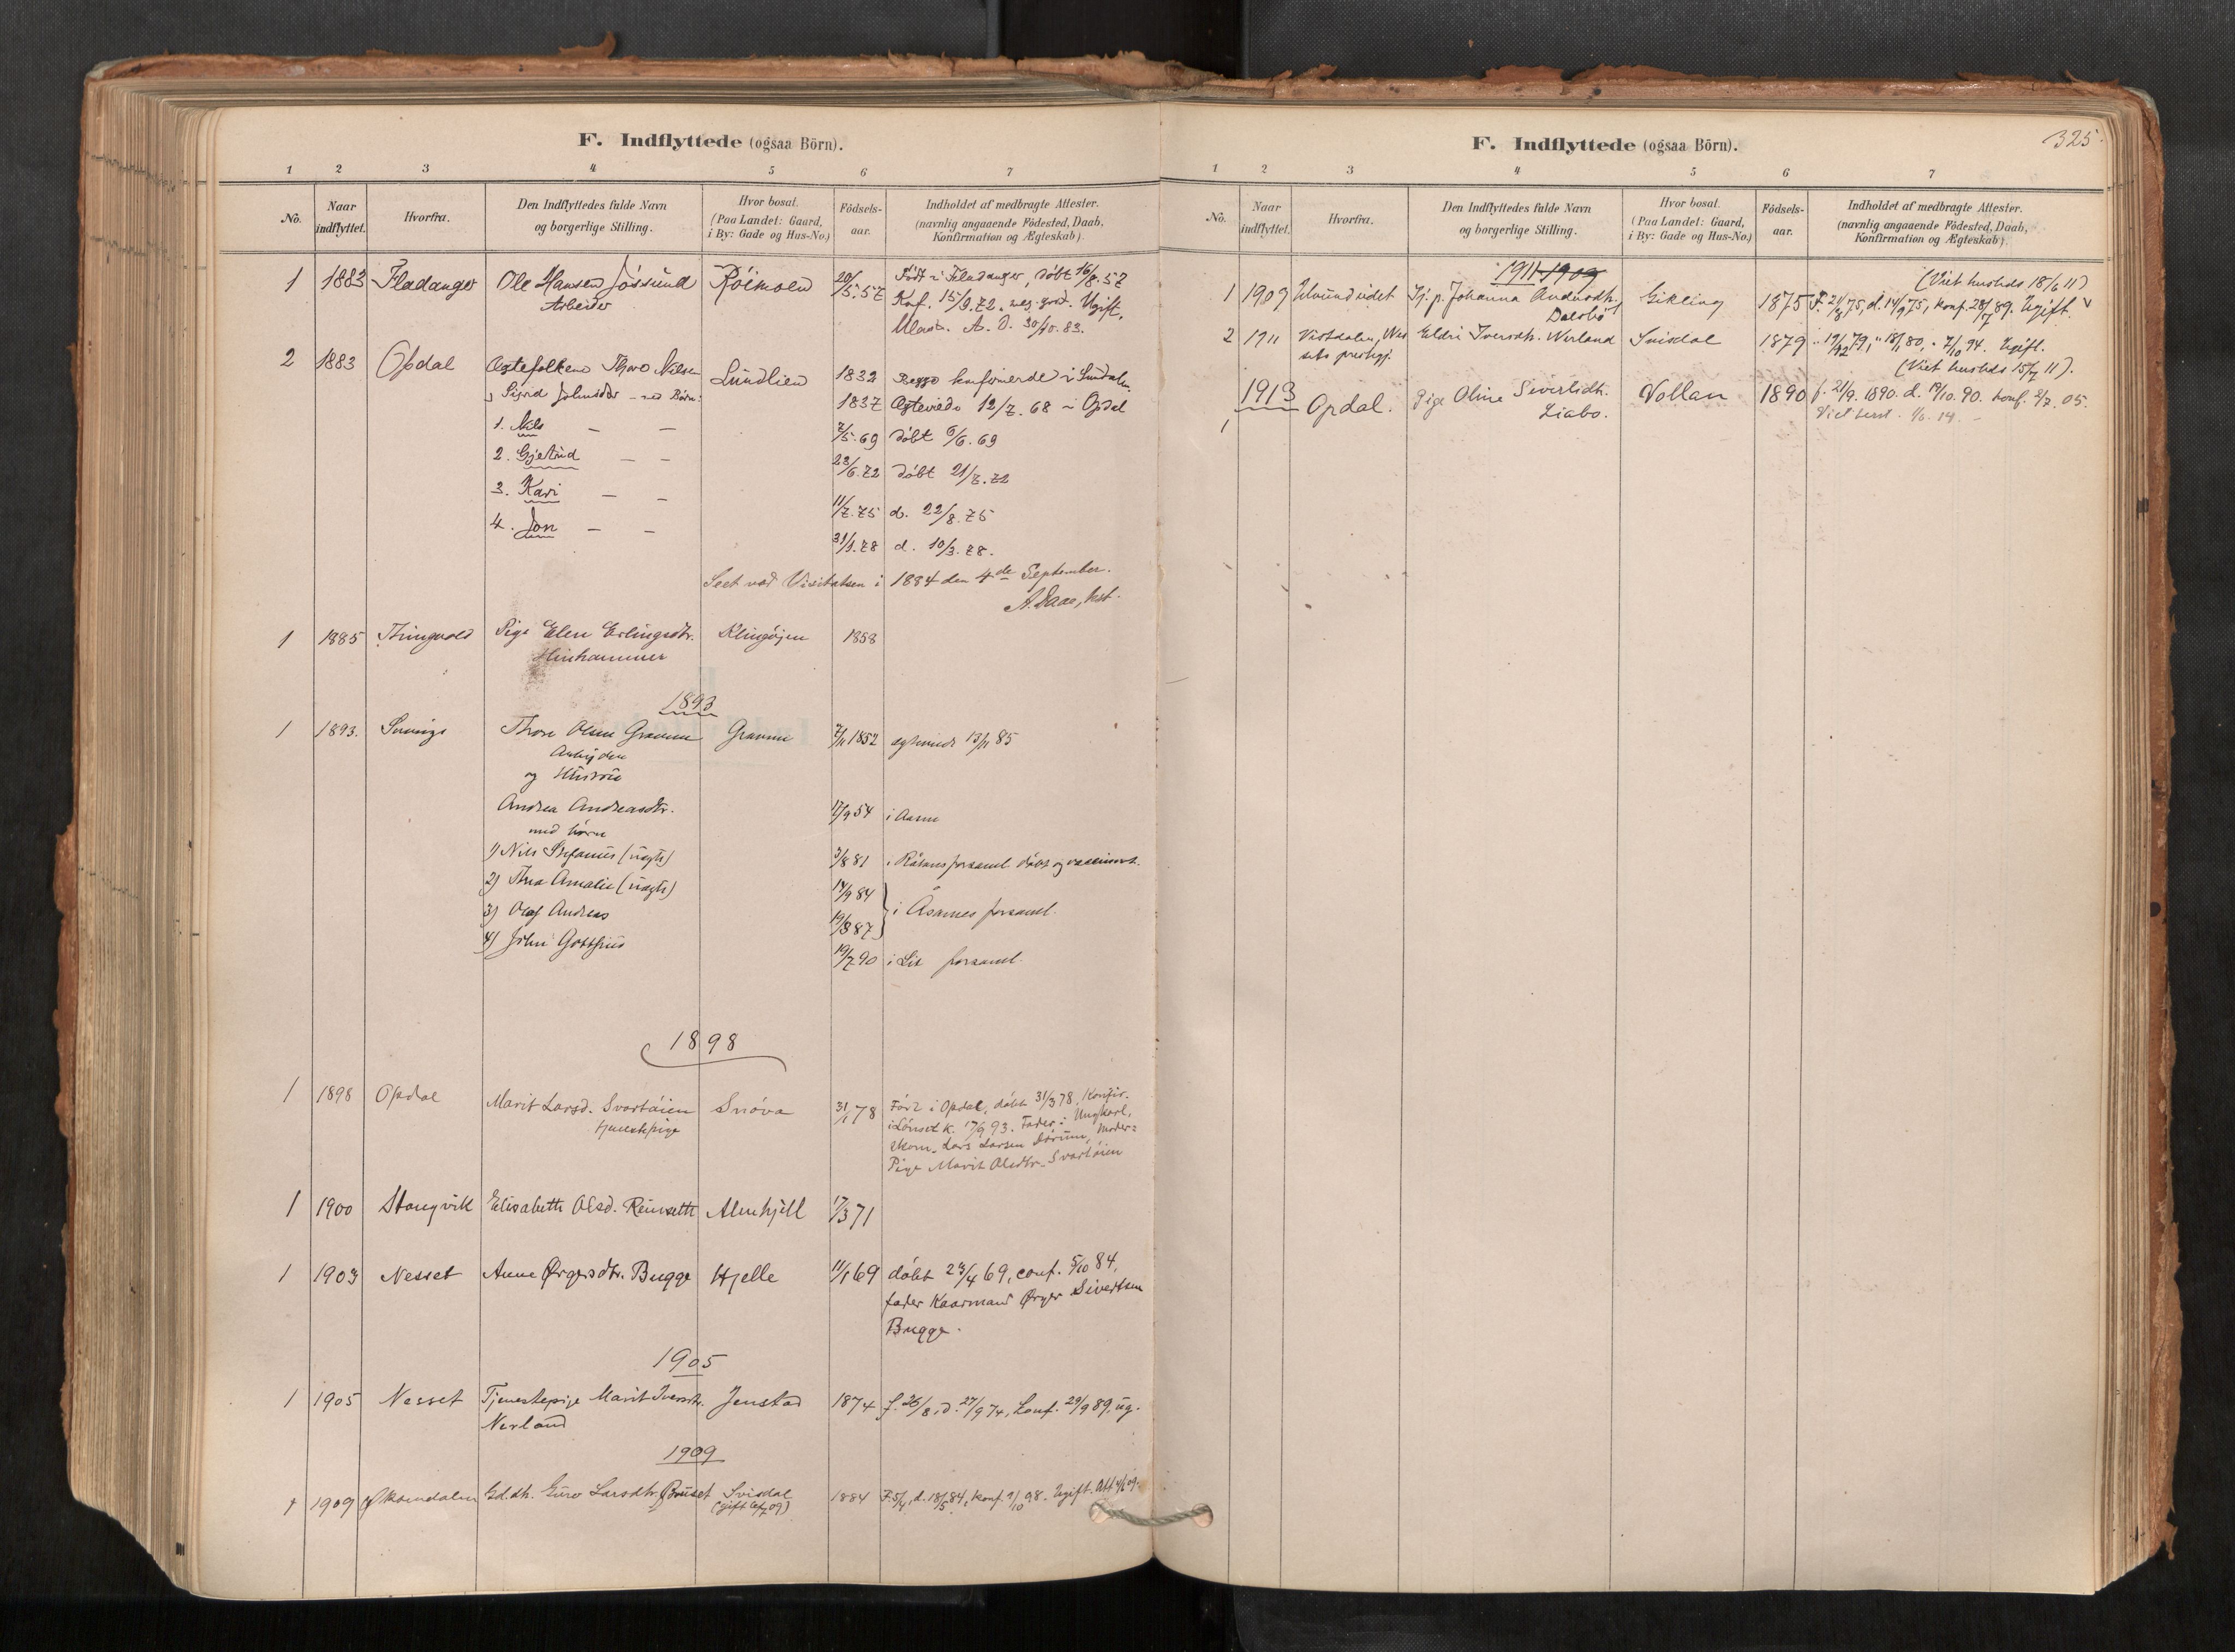 F. Indflyttede (ogsaa Börn).
1 2 3 4 5 6 7
No. Naar indflyttet. Hvorfra. Den Indflyttedes fulde Navn og borgerlige Stilling. Hvor bosat. (Paa Landet: Gaard, i By: Gade og Hus-No.) Födsels-aar. Indholdet af medbragte Attester. (navnlig angaaende Födested, Daab, Konfirmation og Ægteskab).
1 1883 Fladanger Ole Hansen Jössund Röimoen 20/5.57 Födt i Fladanger, döbt 16/8.57
Arbeider Konf. 15/9.72. meg. god. Ugift.
A. D. 30/10.83.
2 1883 Opdal Ægtefolkene Thore Nilsen Lundlien 1832 Begge konfirmerede i Sundalen
Sigrid Johnsdtr - med Börn: 1837 Ægteviede 12/7.68 i Opdal
1. Nils — — 2/5.69 döbt 6/6.69
2. Gjetrud — — 23/6.72 döbt 21/7.72
3. Kari — — 11/7.75 d. 22/8.75
4. Jon — — 31/1.78 d. 10/3.78.
Seet ved Visitatsen i 1884 den 4de September.
A. Daae, kst.
1 1885 Thingvold Pige Elen Erlingsdtr. Klingöjen 1858
1893
1 1893. Thore Olsen Gravem Gravem 7/11 1852 13/11 85
Arbejder
og Hustru
Andrea Andreasdtr. 17/9 54 i Aasne
med börn
1) Nils Stefanus (uægte) 3/8 81 i Råtans forsaml. döbt og vaccineret.
2) Thea Amalie (uægte) 14/9 84
3) Olaf Andreas 19/8 87 i Åsarnes forsaml.
4) John Gottfrid 19/7 90 i Lit forsaml.
1898
1 1898 Opdal Marit Larsd. Svartöien Snöva 31/1 78 Föd i Opdal, döbt 31/3 78, Konfir.
tjenestepige i Lönset k. 17/9 93. Fader: Ungkarl,
skom. Lars Larsen Dörum, Moder:
Pige Marit Olsdtr. Svartöien
1 1900 Stangvik Elisabeth Olsd. Reinseth Almskjell 17/3 71
1 1903 Nesset Anne Ørgersdtr. Bugge Hjelle 11/1 69 döbt 23/4 69, conf. 5/10 84,
fader Kaarmand Ørger Sivertsen
Bugge.
1905
1 1905 Nesset Tjenestepige Marit Iversdtr. Jenstad 1874 f. 26/8, d. 27/9 74, Konf. 29/9 89, ug.
Nerland
1909
1 1909 Øksendalen Gd.dt. Guro Larsdtr. Bruset Svisdal 1884 F. 5/4, d. 18/5 84, konf. 2/10 98. Ugift. Att 4/6 09.
(gift 6/7 09)
325.
F. Indflyttede (ogsaa Börn).
1 2 3 4 5 6 7
No. Naar indflyttet. Hvorfra. Den Indflyttedes fulde Navn og borgerlige Stilling. Hvor bosat. (Paa Landet: Gaard, i By: Gade og Hus-No.) Födsels-aar. Indholdet af medbragte Attester. (navnlig angaaende Födested, Daab, Konfirmation og Ægteskab).
1911 1909 (Viet husteds 18/6 11)
1 1909 Ulvundeidet Tj. p. Johanna Andersdtr. Gikling 1875 F. 21/8 75, d. 14/9 75, konf. 28/7 89. Ugift.
Dalsbö
2 1911 Vistdalen, Nes Eldri Iversdtr. Nerland Svisdal 1879 " 19/12 79, " 18/1 80, " 7/10 94. Ugift.
sets prestegj. (Viet husteds 15/7 11).
1913 Opdal. Pige Oline Sivertsdtr. Vollan 1890 f. 21/9. 1890. d. 19/10. 90. konf. 2/7. 05.
1 Liabö. Viet 1/6. 14. -